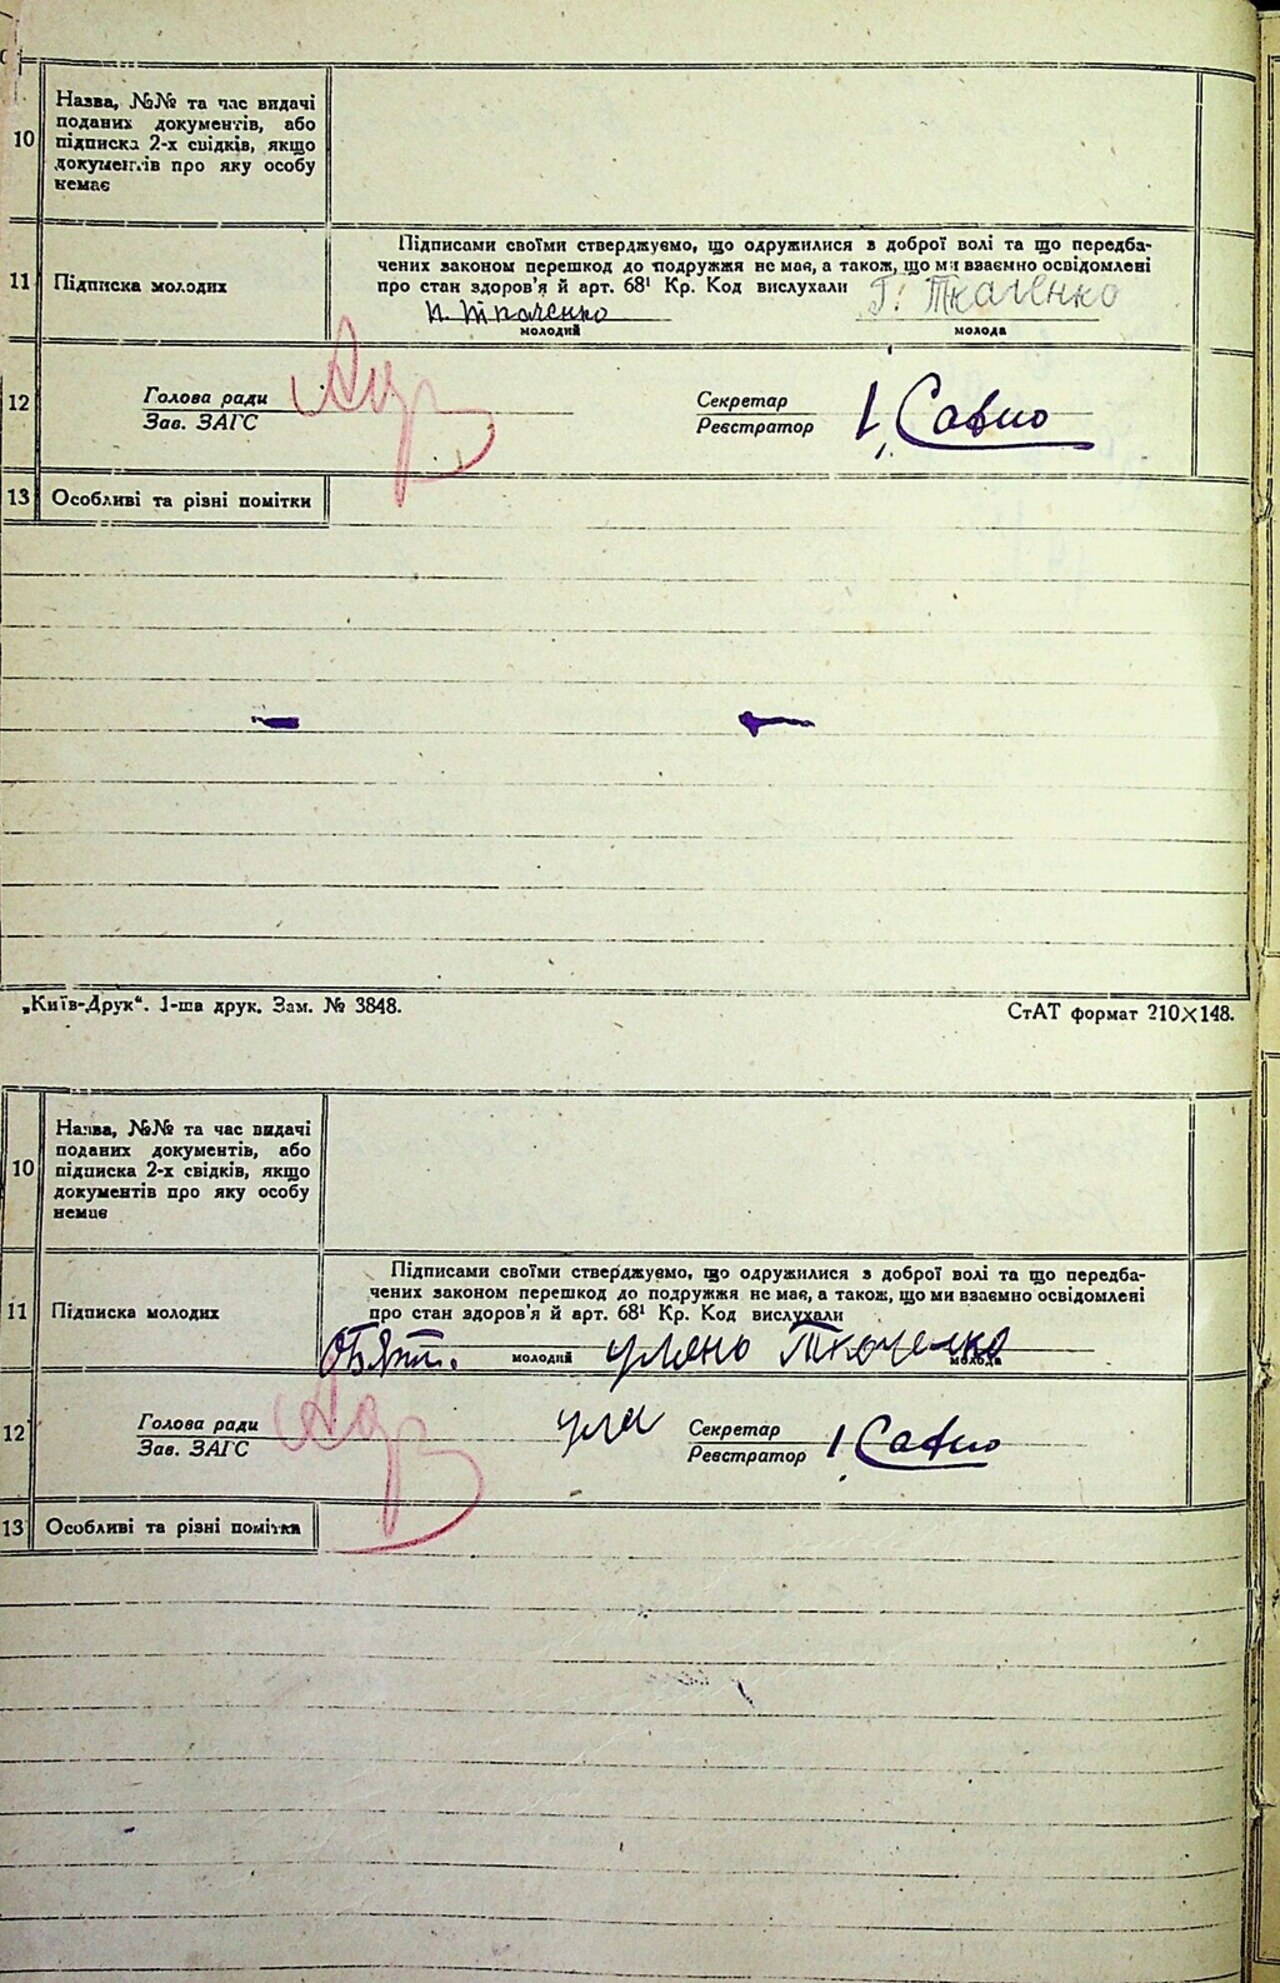 10
Назва, №№ та час видачі
поданих документів, або
підписка 2-х свідків, якщо
документів про яку особу
немає
11
Підписка молодих
Підписами своїми стверджуємо, що одружилися з доброї волі та що передба-
чених законом перешкод до подружжя не має, а також, що ми взаємно освідомлені
про стан здоров'я й арт. 68¹ Кр. Код вислухали
П. Ткаченко
Г. Ткаченко
молодий
молода
12
Голова ради
Зав. ЗАГС
Секретар
Реєстратор
І. Савно
13
Особливі та різні помітки
„Київ-Друк“. 1-ша друк. Зам. № 3848.
СтАТ формат 210×148.
10
Назва, №№ та час видачі
поданих документів, або
підписка 2-х свідків, якщо
документів про яку особу
немає
11
Підписка молодих
Підписами своїми стверджуємо, що одружилися з доброї волі та що передба-
чених законом перешкод до подружжя не має, а також, що ми взаємно освідомлені
про стан здоров'я й арт. 68¹ Кр. Код вислухали
Ткаченко
молодий
молода
12
Голова ради
Зав. ЗАГС
Секретар
Реєстратор
І Савно
13
Особливі та різні помітки